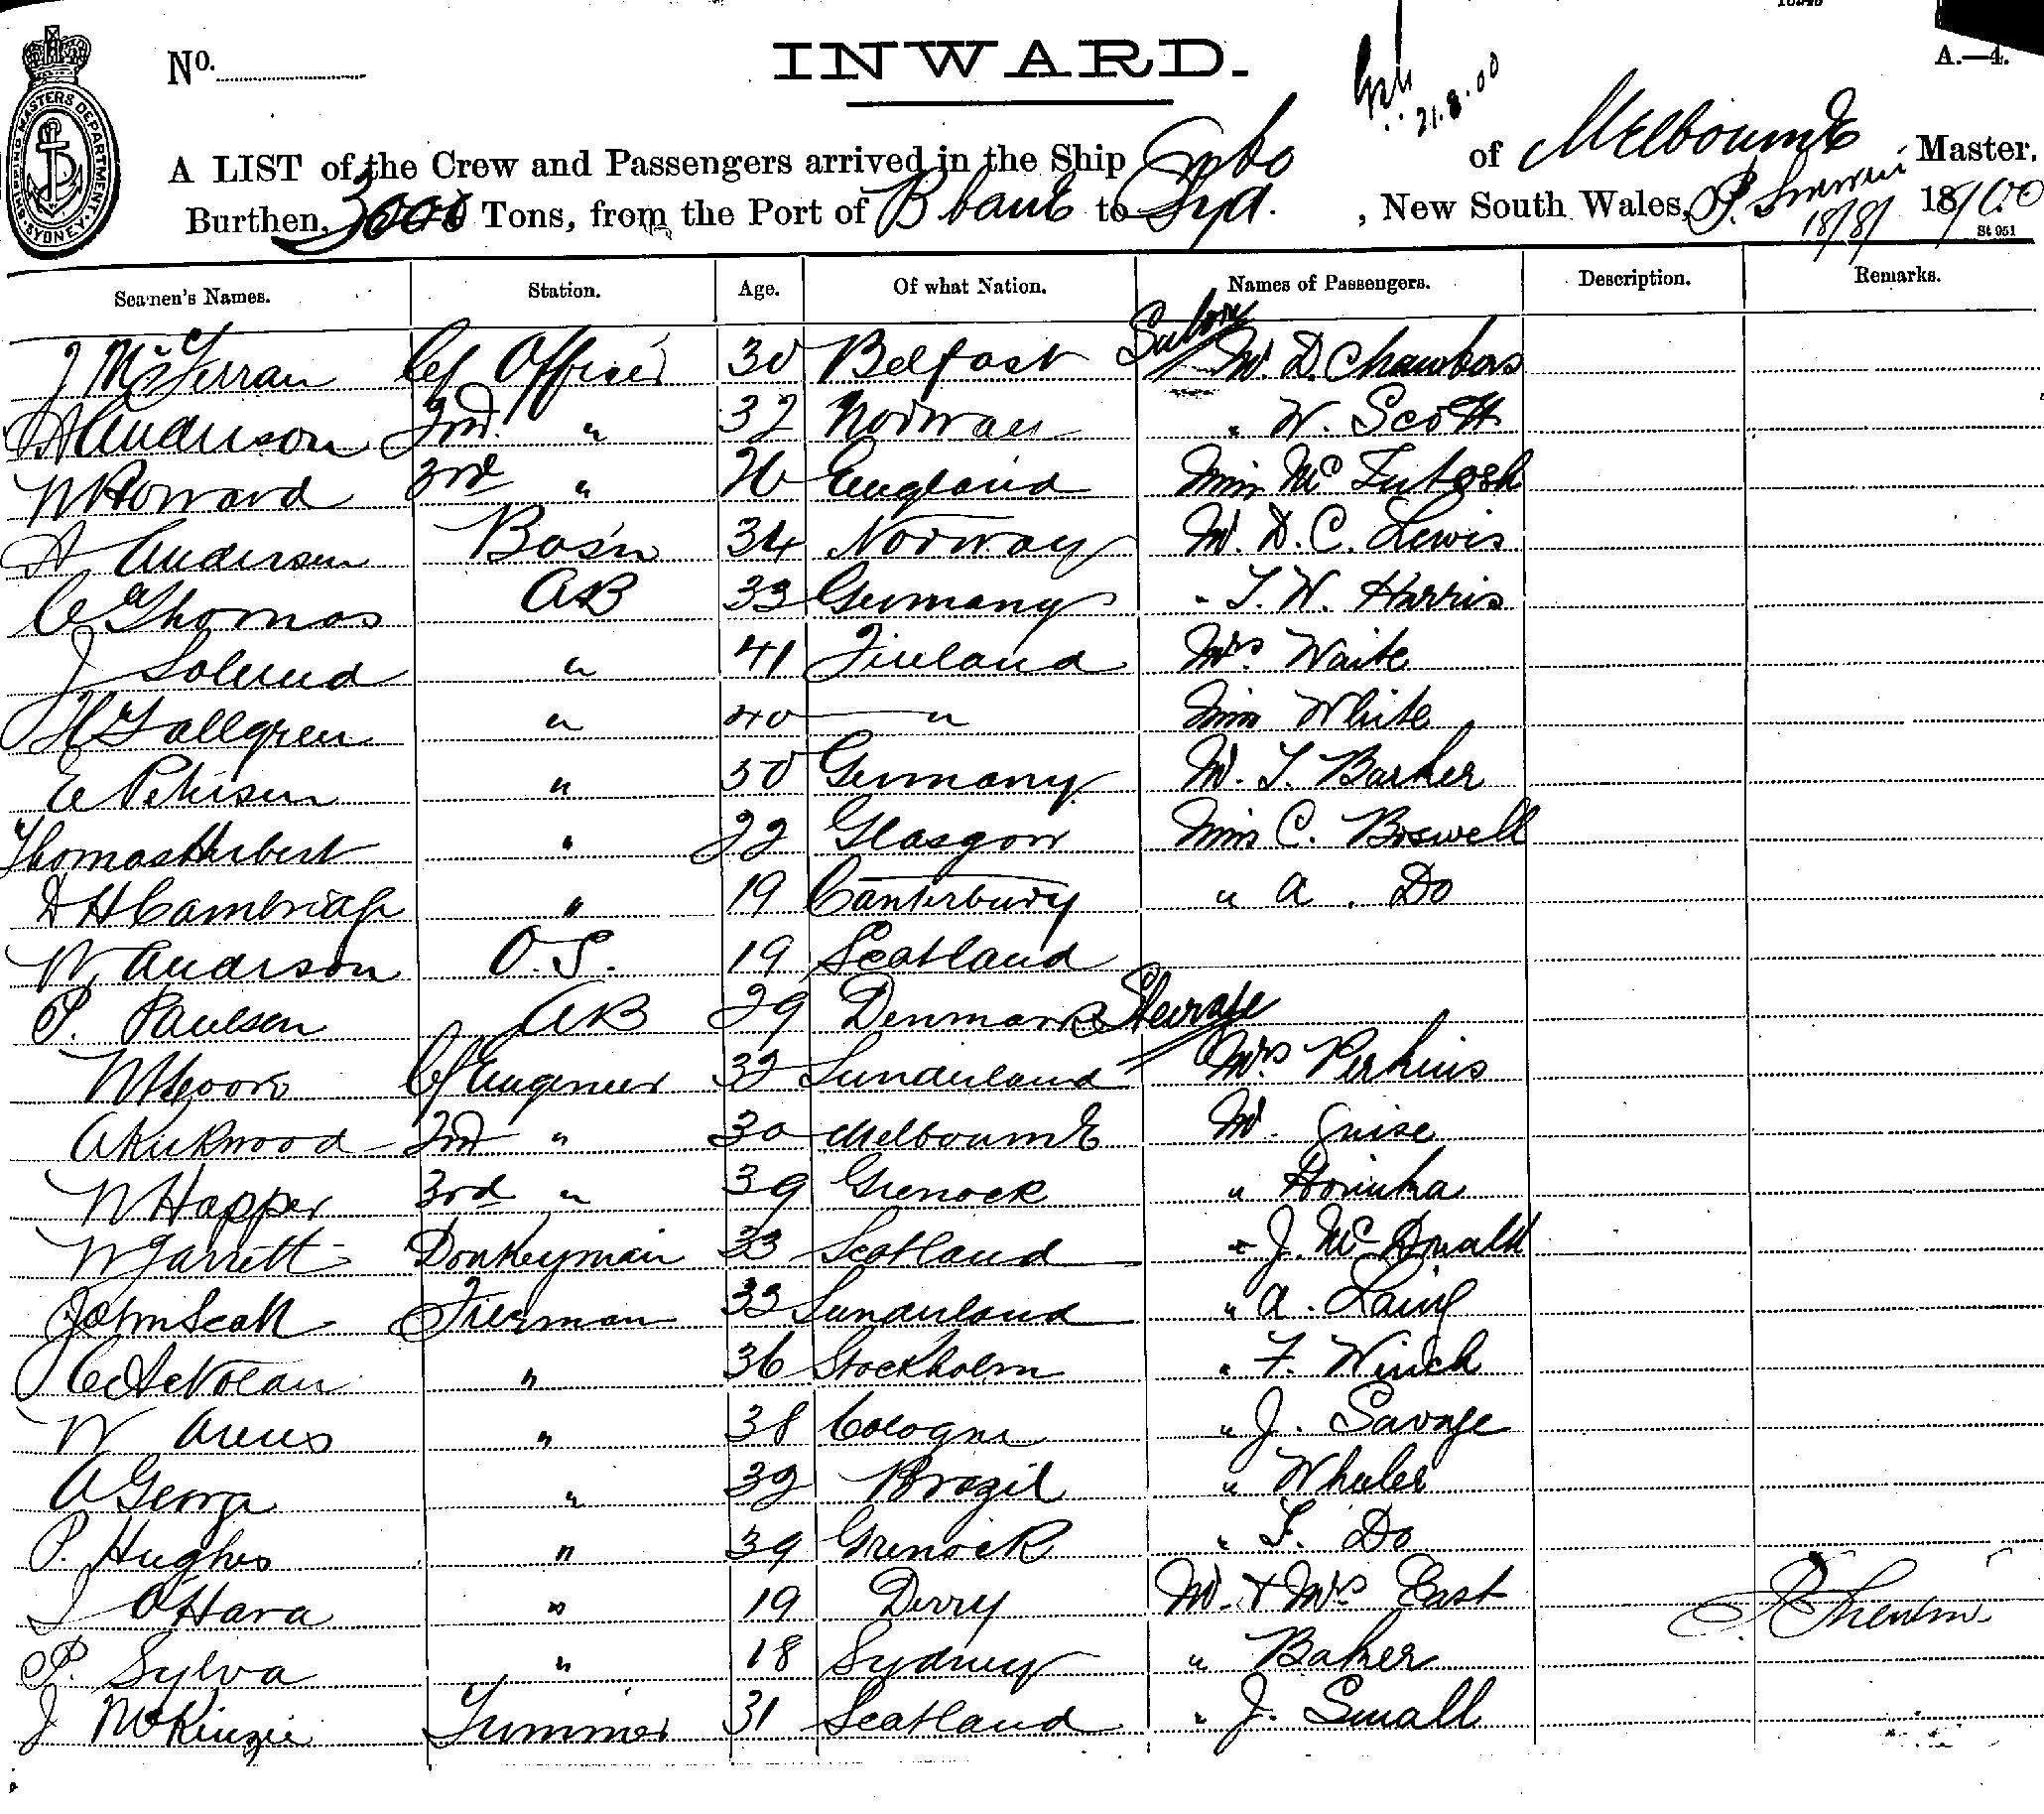 No. INWARD. 21.8.00 A.—4.
SHIPPING MASTERS DEPARTMENT. SYDNEY
A LIST of the Crew and Passengers arrived in the Ship of MElbournE Master.
Burthen, Tons, from the Port of BbanE to Syd. , New South Wales, P. 18/8/ 18/00
St 951
Seamen's Names. Station. Age. Of what Nation. Names of Passengers. Description. Remarks.
Saloon
J McFerran Cf Officer 30 Belfast Mr. D. Chambers
A Anderson 2nd. " 32 Norway " W. Scott
W Howard 3rd " 26 England Miss McIntosh
A Andersen Bos'n 34 Norway Mr. D. C. Lewis
C Thomas AB 33 Germany " T. W. Harris
J Solund " 41 Finland Mrs Waite
H Tallgren " 40 " Miss White
E Petersen " 30 Germany Mr. T. Barker
Thomas Herbert " 22 Glasgow Miss C. Boswell
D H Cambridge " 19 Canterbury " A. Do
W Anderson O.S. 19 Scotland
P. Paulsen AB 29 Denmark Steerage
W Moore Cf Engineer 32 Sunderland Mrs Perkins
A Kirkwood 2nd " 30 MelbournE Mr. Guise
W Happer 3rd " 39 Grenock "
W Garrett Donkeyman 33 Scotland " J. McDonald
John Scott Fierman 33 Sunderland " A. Laing
C A Nolan " 36 Stockholm " F. Winch
W Arens " 38 Cologne " J. Savage
A George " 32 Brazil " Wheeler
P. Hughes " 39 Grenock " T. Do
J O'Hara " 19 Derry Mr. & Mrs East
P. Sylva " 18 Sydney " Baker
J McKinzie Trimmer 31 Scotland " J. Small